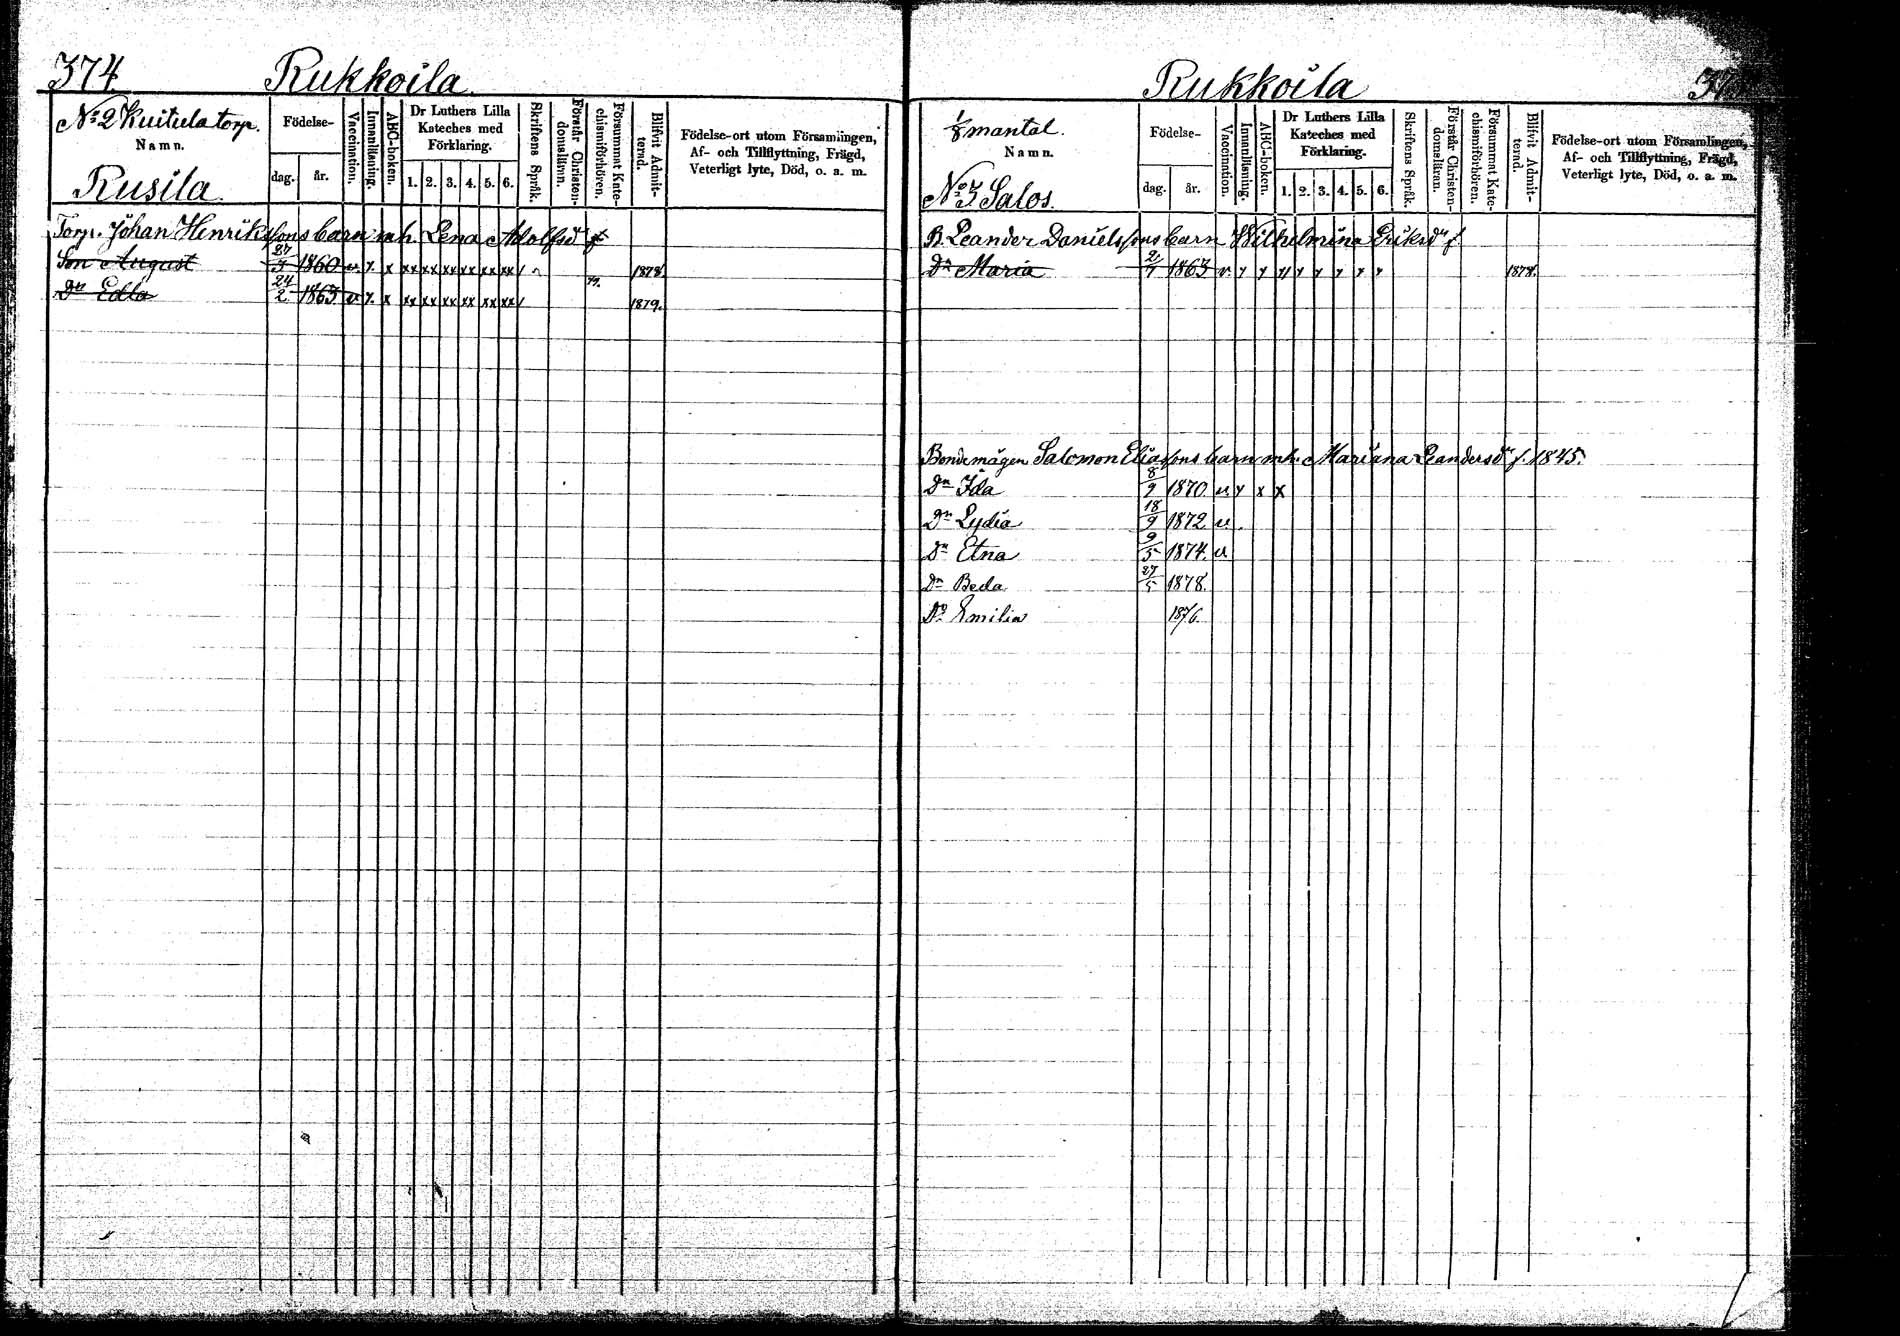 374.
Rukkoila.
No 2 Kuitula torp.
Namn.
Rusila.
Födelse-
dag.
år.
Vaccination.
Innanläsning.
ABC-boken.
Dr Luthers Lilla
Kateches med
Förklaring.
1. 2. 3. 4. 5. 6.
Skriftens Språk.
Förstår Christen-
domsläran.
Försummat Kate-
chismiförhören.
Blifvit Admit-
terad.
Födelse-ort utom Församlingen,
Af- och Tillflyttning, Frägd,
Veterligt lyte, Död, o. a. m.
Torp. Johan Henrikssons barn m h. Lena Adolfsd f
Son August 27/3 1860 v. x x xx xx xx xx xx xx / 1878.
Dr Edla 24/2 1863 v x x xx xx xx xx xx xx / 1879.
Rukkoila
1/8 mantal.
Namn.
No 3 Salos.
Födelse-
dag.
år.
Vaccination.
Innanläsning.
ABC-boken.
Dr Luthers Lilla
Kateches med
Förklaring.
1. 2. 3. 4. 5. 6.
Skriftens Språk.
Förstår Christen-
domsläran.
Försummat Kate-
chismiförhören.
Blifvit Admit-
terad.
Födelse-ort utom Församlingen,
Af- och Tillflyttning, Frägd,
Veterligt lyte, Död, o. a. m.
B. Leander Danielssons barn Wilhelmina Eriksdr f.
Dr Maria 1863 v 1878.
Bondemågen Salomon Eliassons barn mh. Mariana Leandersdr f. 1845.
Dr Ida 8/9 1870 v. x x x
Dr Lydia 18/9 1872 v.
Dr Etna 9/5 1874. v.
Dr Beda 27/5 1878.
Do Emilia 1876